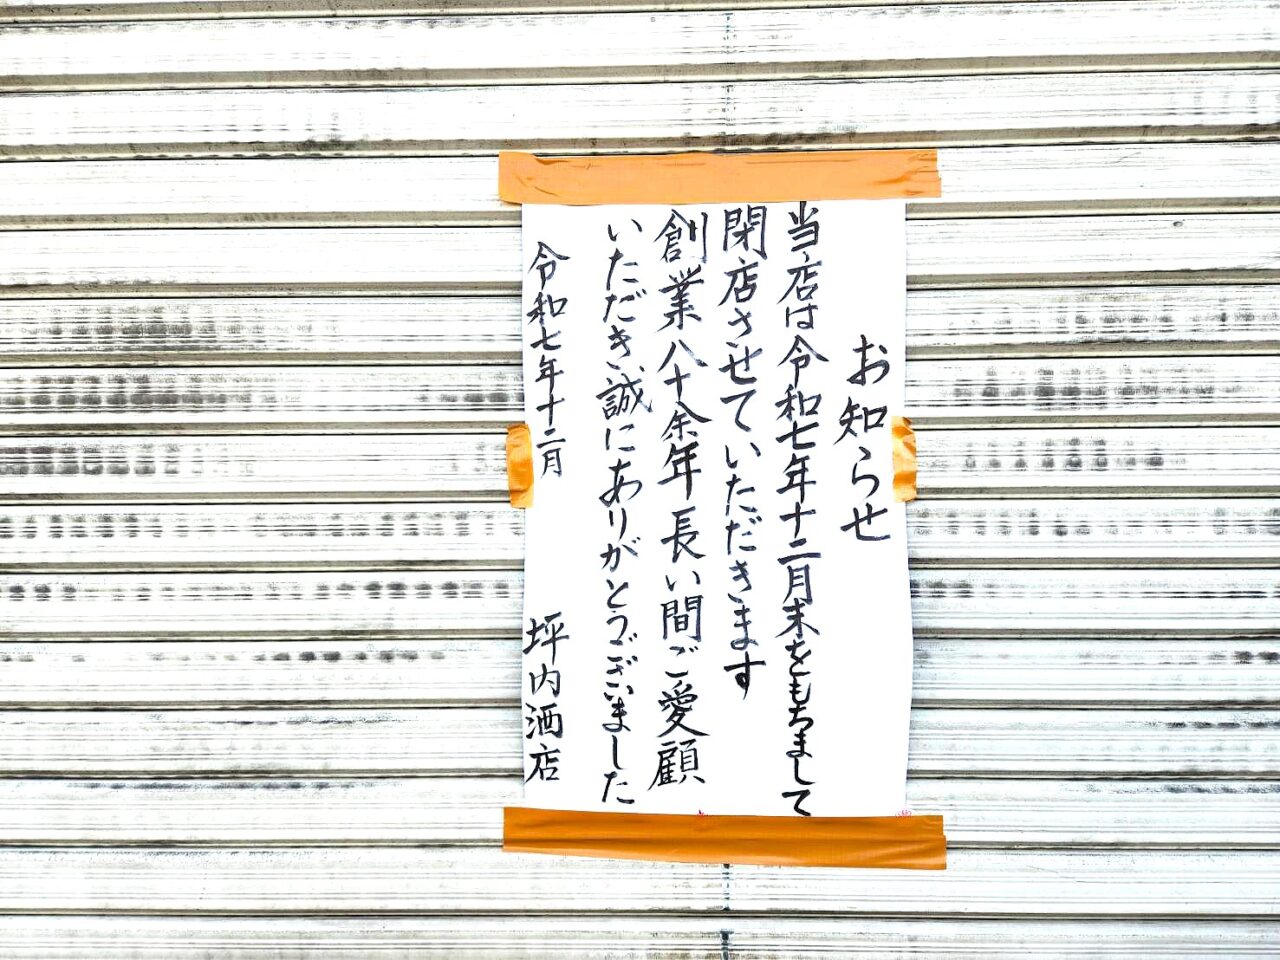 お知らせ
当店は令和七年十二月末をもちまして
閉店させていただきます
創業八十余年長い間ご愛顧
いただき誠にありがとうございました
令和七年十二月
坪内酒店